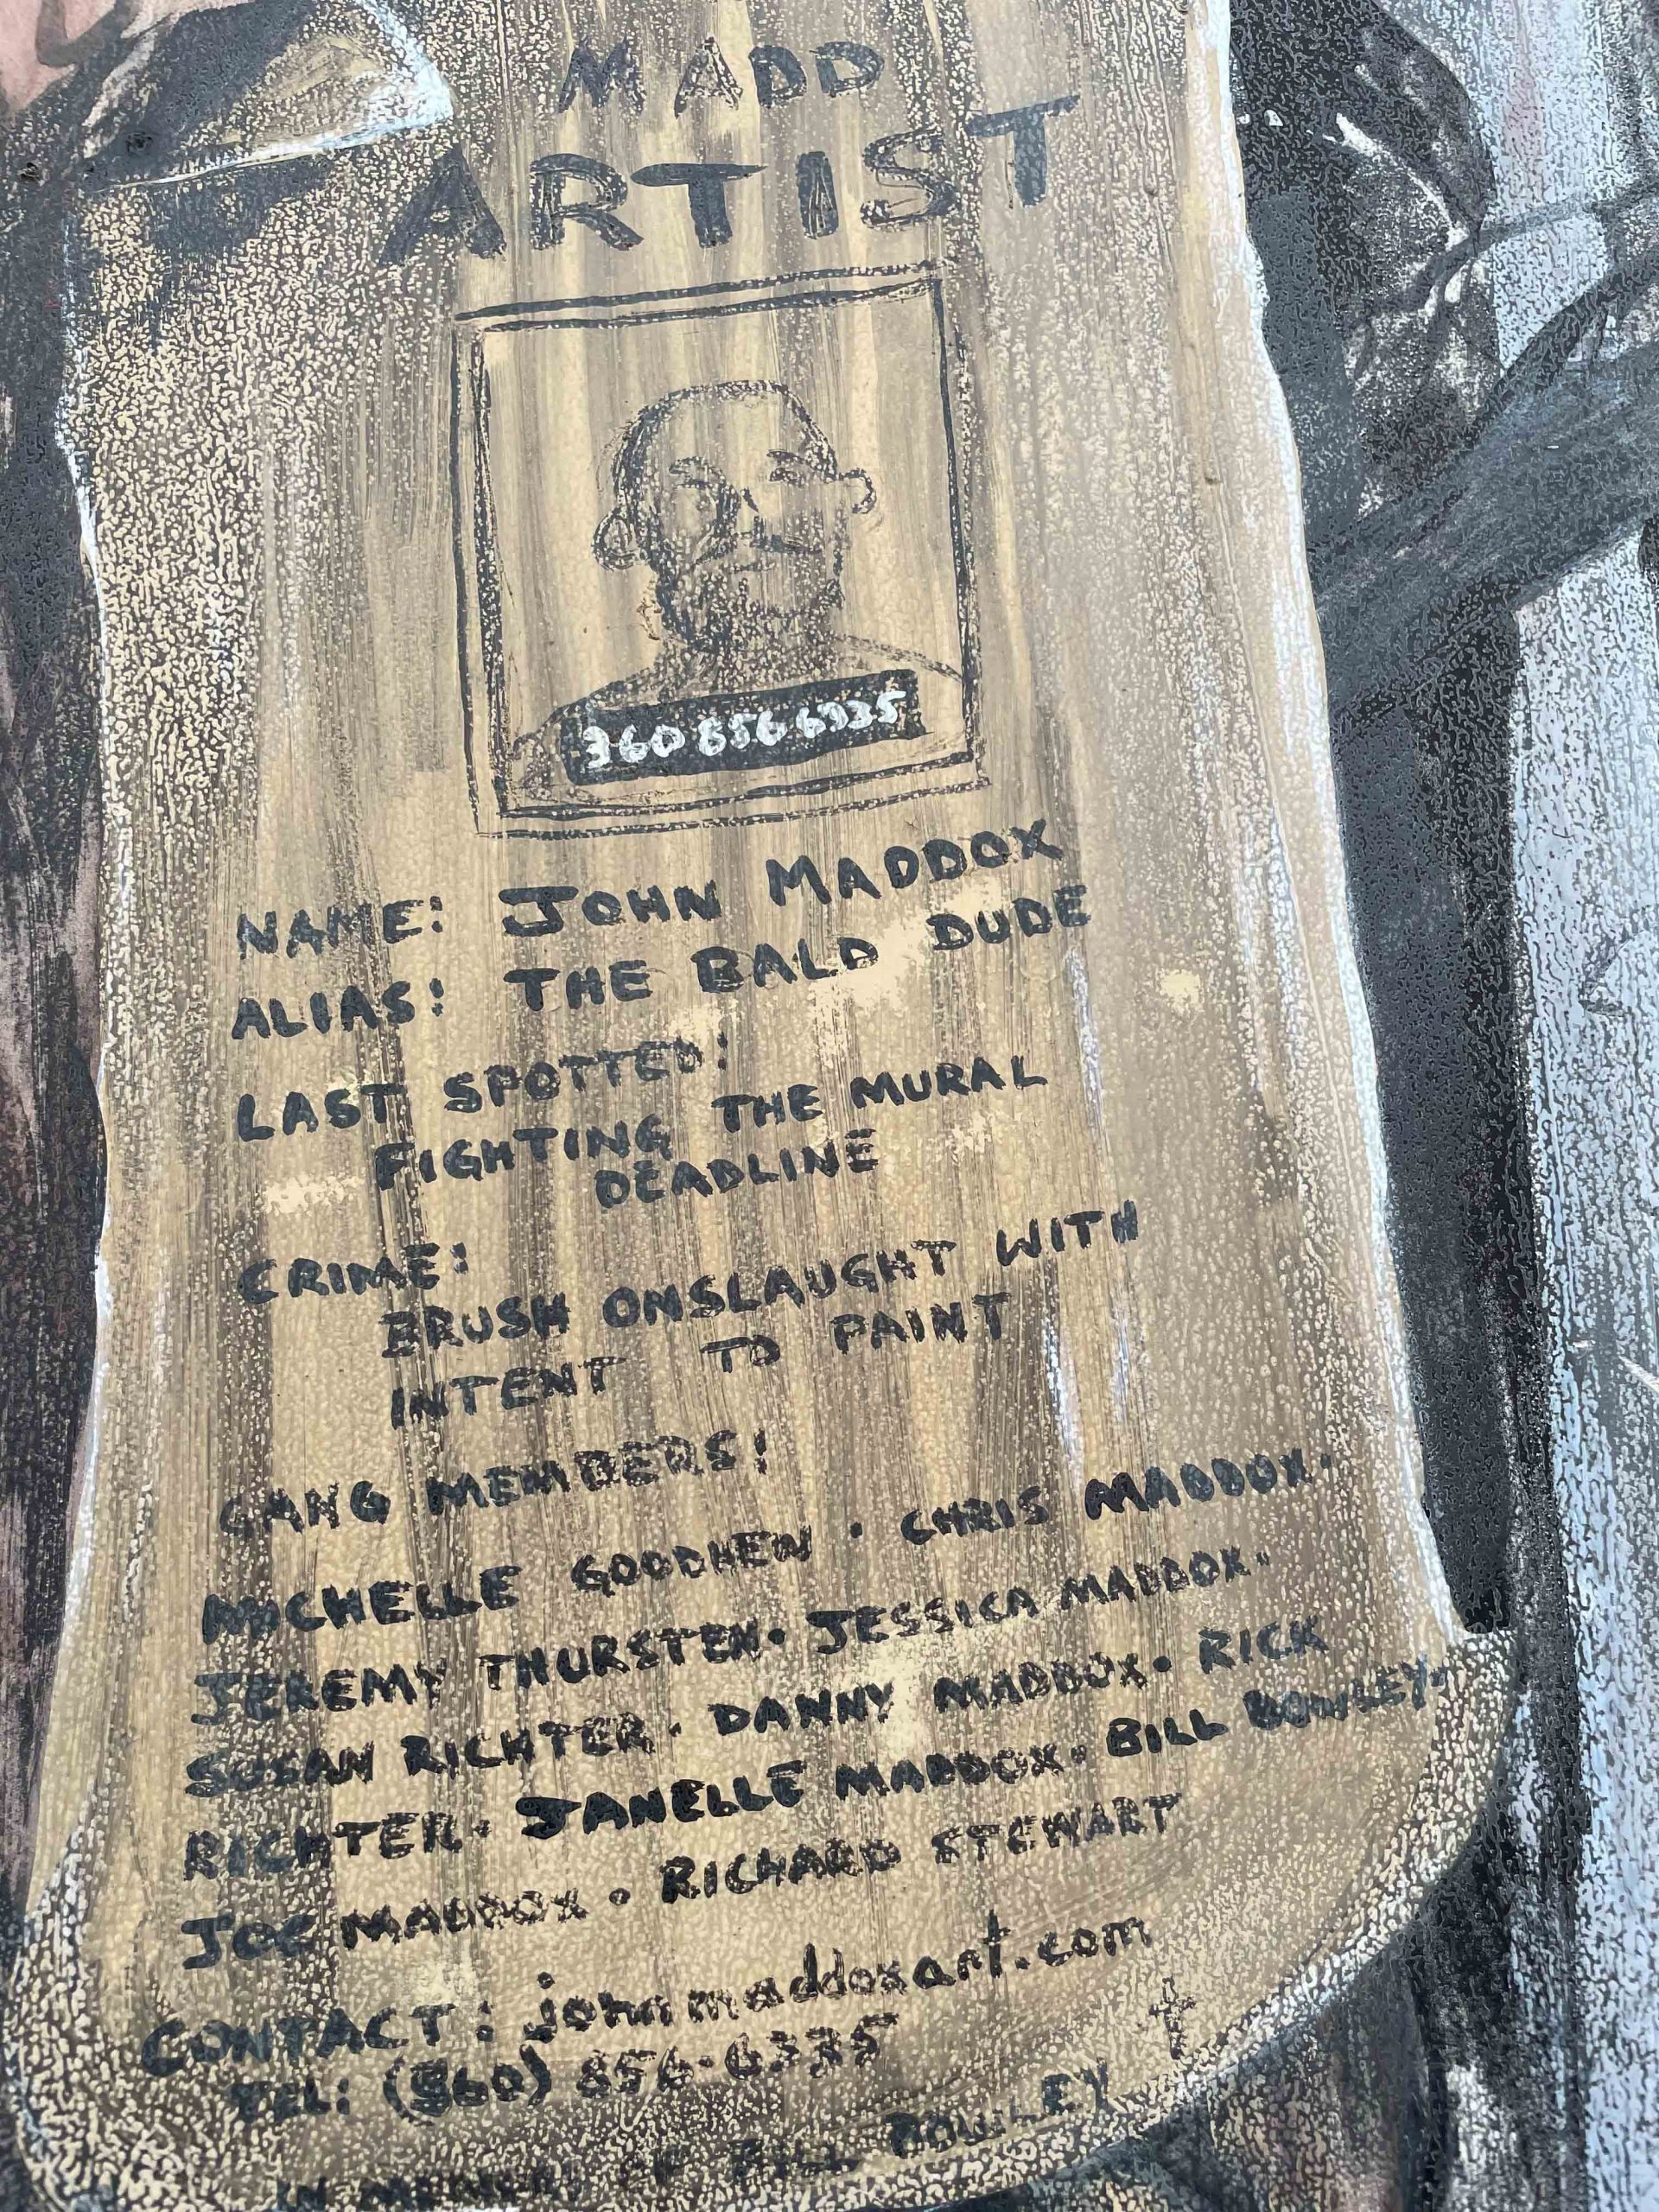 MADD
ARTIST
360 856 6335
NAME: JOHN MADDOX
ALIAS: THE BALD DUDE
LAST SPOTTED:
FIGHTING THE MURAL
DEADLINE
CRIME:
BRUSH ONSLAUGHT WITH
INTENT TO PAINT
GANG MEMBERS:
MICHELLE GOODHEW · CHRIS MADDOX ·
JEREMY THURSTEN · JESSICA MADDOX ·
SUSAN RICHTER · DANNY MADDOX · RICK
RICHTER · JANELLE MADDOX · BILL BOWLEY ·
JOE MADDOX · RICHARD STEWART
CONTACT: johnmaddoxart.com
TEL: (360) 856-6335
IN MEMORY OF BILL BOWLEY